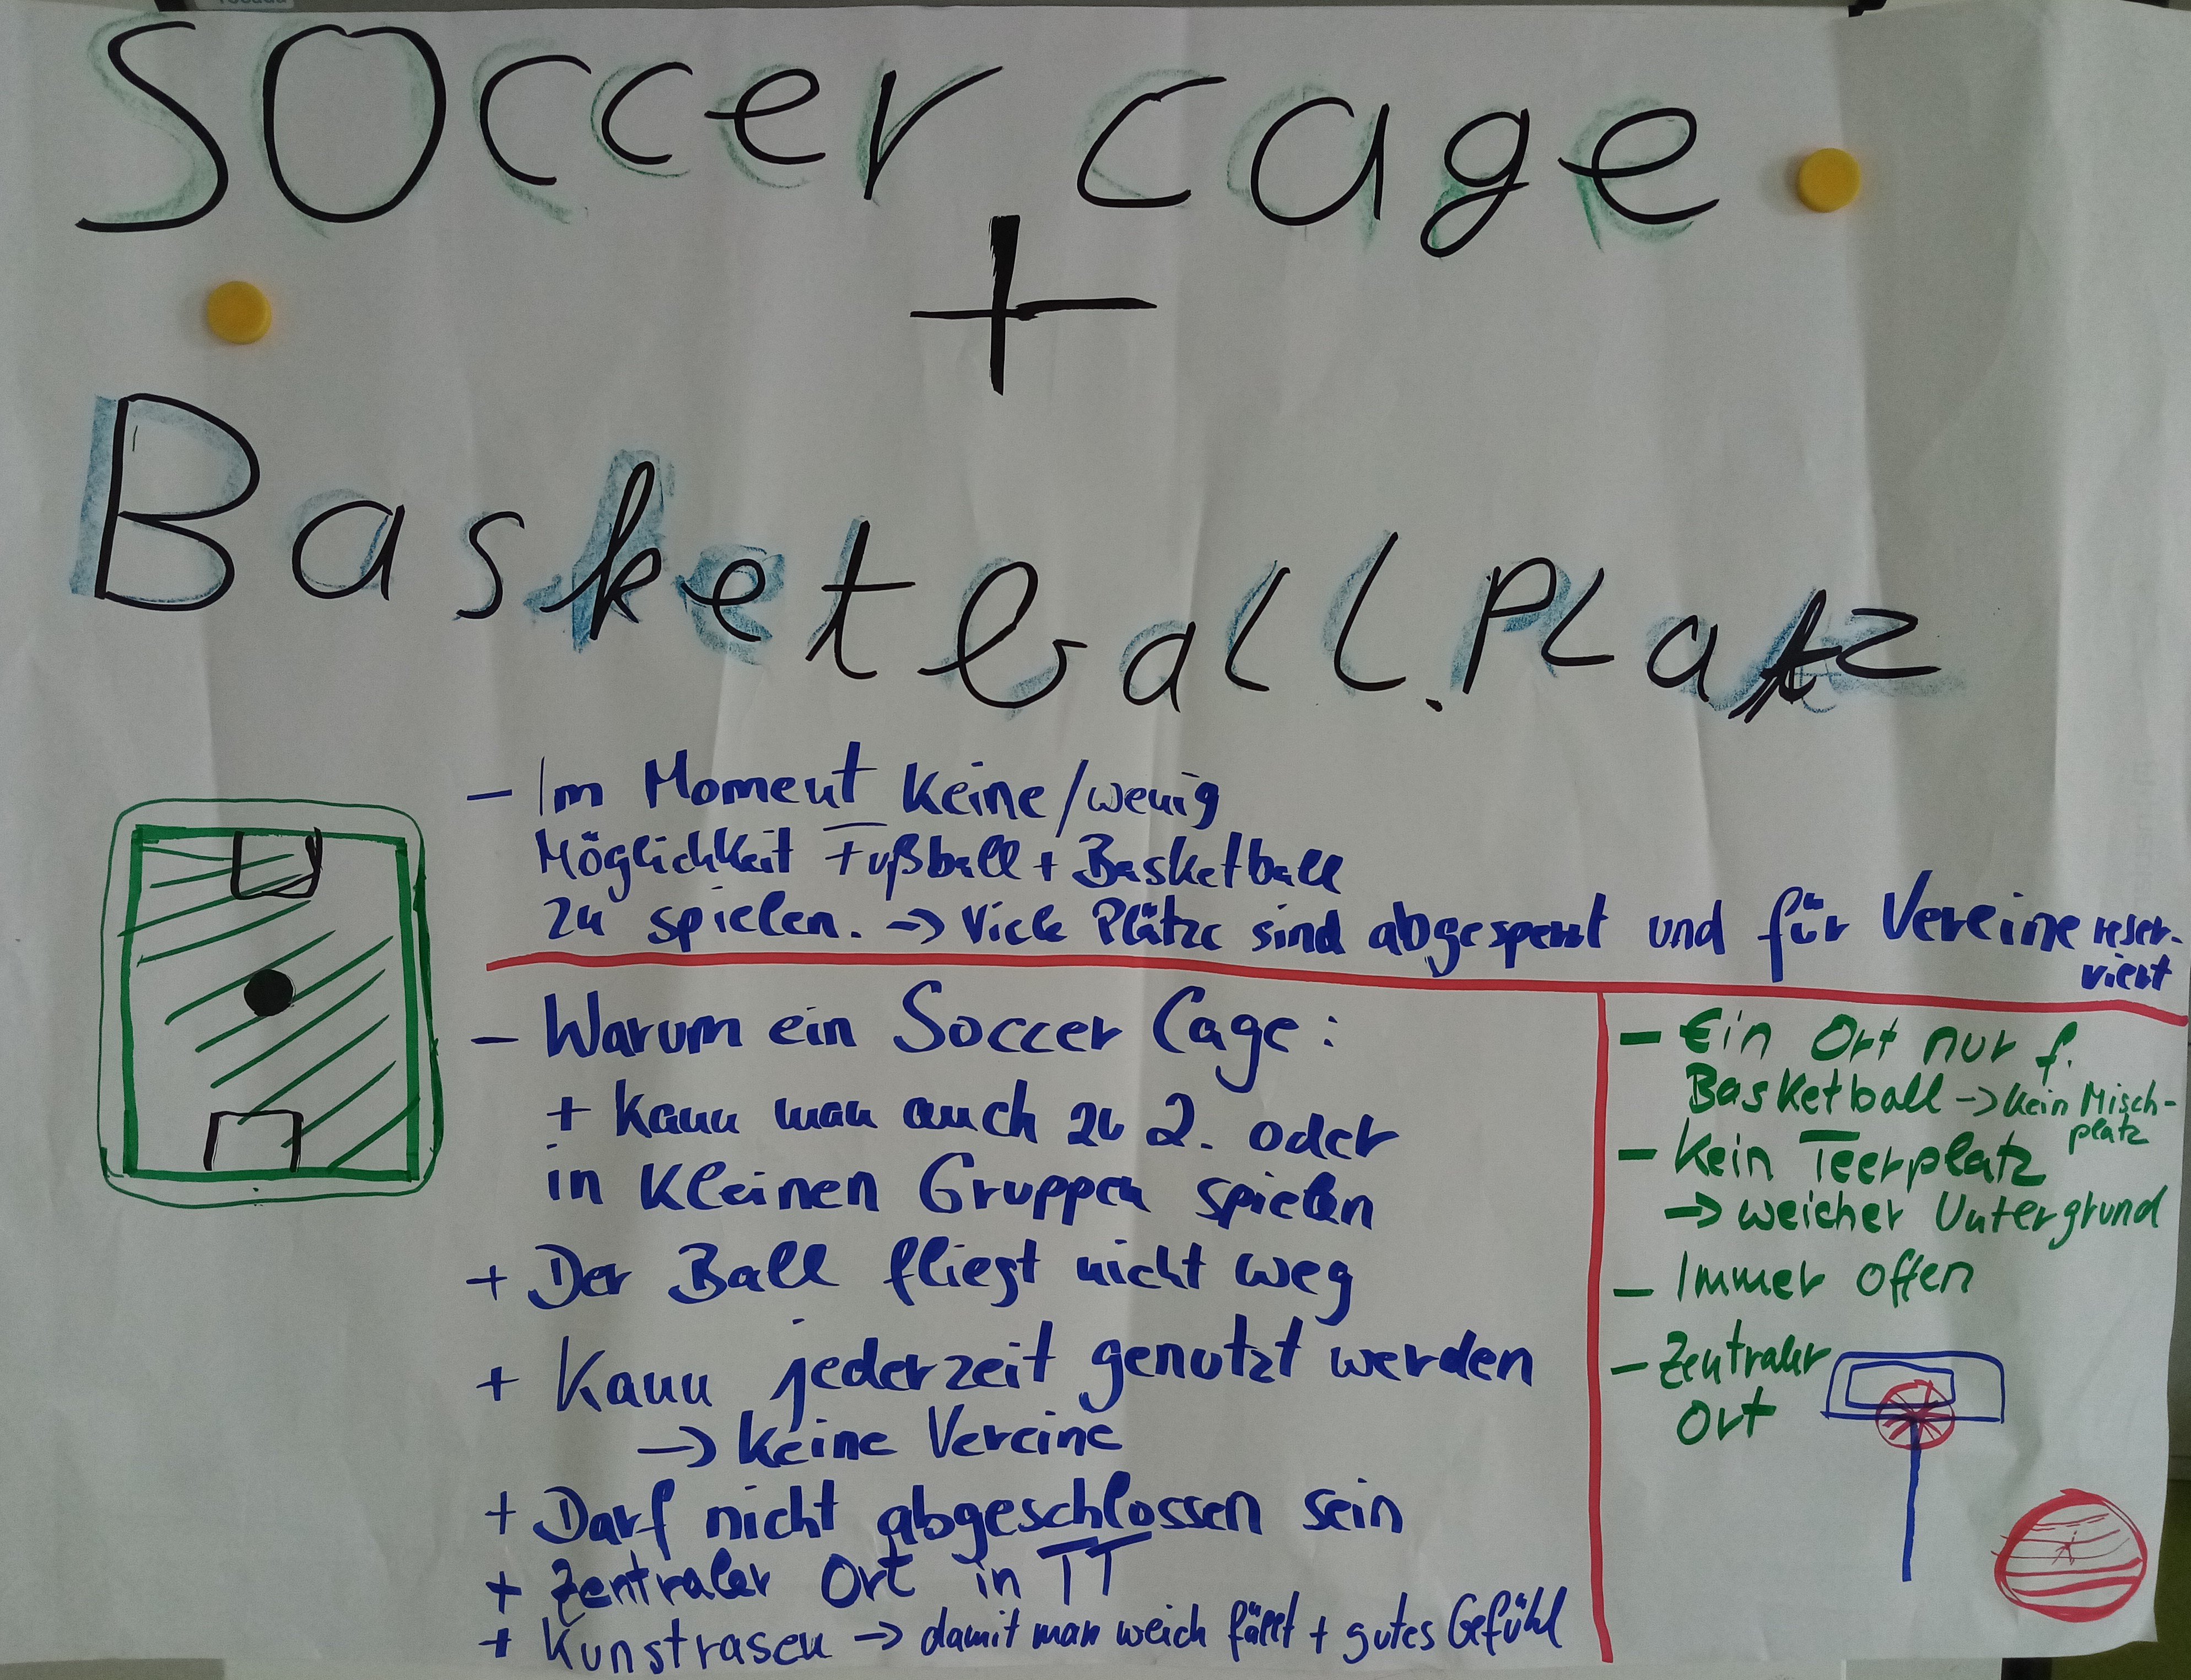 Soccer cage
+
Basketball.Platz
- Im Moment keine/wenig
Möglichkeit Fußball + Basketball
zu spielen. -> Viele Plätze sind abgesperrt und für Vereine reser-
viert
- Warum ein Soccer Cage:
+ Kann man auch zu 2. oder
in kleinen Gruppen spielen
+ Der Ball fliegt nicht weg
+ Kann jederzeit genutzt werden
-> keine Vereine
+ Darf nicht abgeschlossen sein
+ Zentraler Ort in TT
+ Kunstrasen -> damit man weich fällt + gutes Gefühl
- Ein Ort nur f.
Basketball -> kein Misch-
platz
- Kein Teerplatz
-> weicher Untergrund
- Immer offen
- Zentraler
Ort